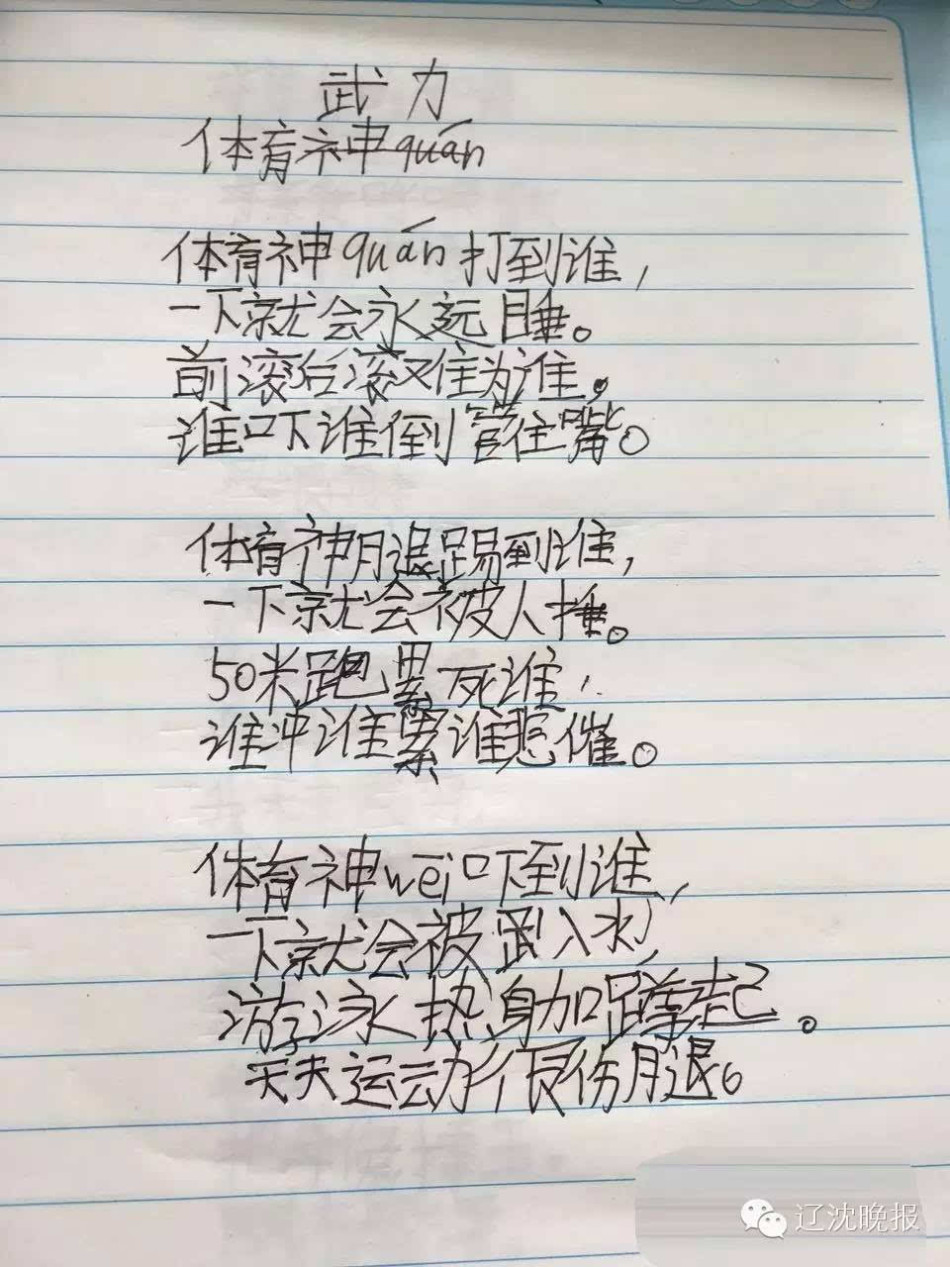 武力
体育神quán
体育神quán打到谁,
一下就会永远睡。
前滚后滚又难为谁,
谁吓谁倒管住嘴。
体育神腿踢到谁,
一下就会被人捶。
50米跑累死谁,
谁冲谁累谁悲催。
体育神wei吓到谁,
一下就会被踢入水,
游泳热身加蹲起。
天天运动很伤腿。
辽沈晚报